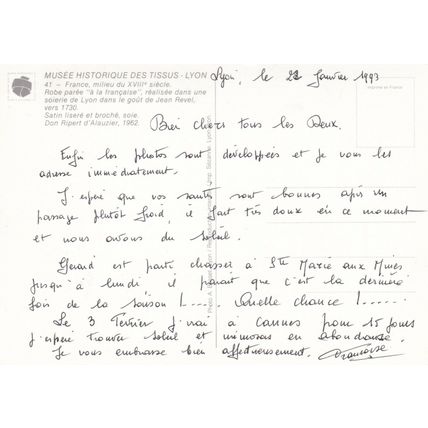 MUSÉE HISTORIQUE DES TISSUS - LYON
41 - France, milieu du XVIIIe siècle.
Robe parée "à la française", réalisée dans une
soierie de Lyon dans le goût de Jean Revel,
vers 1730.
Satin liseré et broché, soie.
Don Ripert d'Alauzier, 1962.
Imprimé en France
Lyon, le 22 Janvier 1993
Bien chers tous les Deux.
Enfin les photos sont développées et je vous les
adresse immédiatement.
J'espère que vos santés sont bonnes après un
passage plutôt froid, il fait très doux en ce moment
et nous avons du soleil.
Gérard est parti chasser à Ste Marie aux Mines
jusqu'à lundi, il parait que c'est la dernière
fois de la saison !.... Quelle chance !......
Le 3 Février j'irai à Cannes pour 15 jours
j'espère trouver soleil et mimosas en abondance.
Je vous embrasse bien affectueusement. Françoise